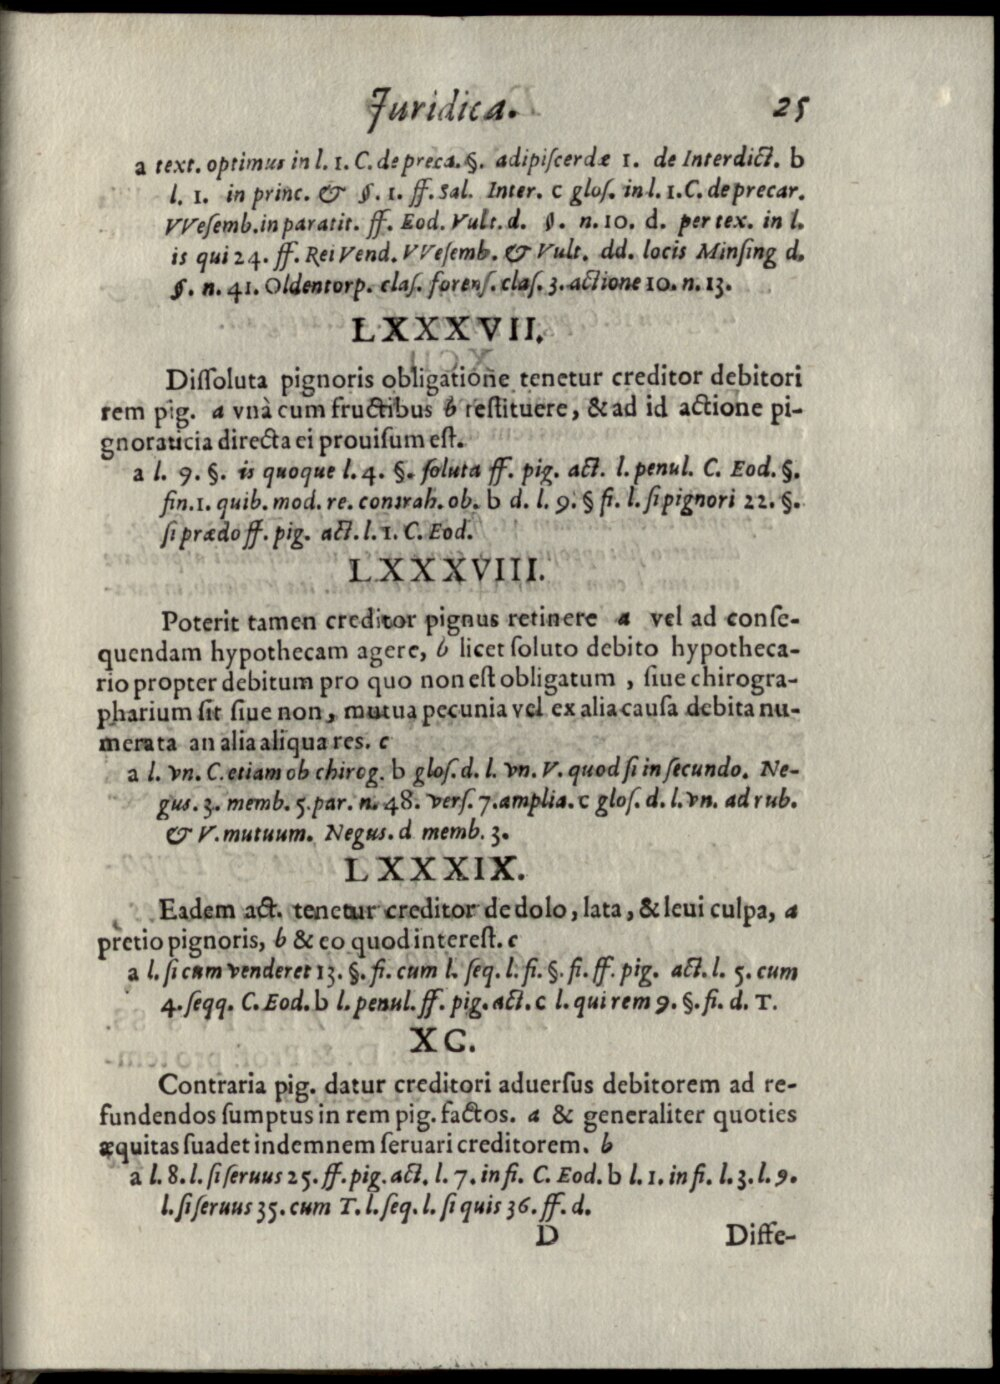 Juridica. 25
a text. optimus in l. 1. C. de preca. §. adipiſcerdæ 1. de Interdict. b
l. 1. in princ. & §. 1. ff. Sal. Inter. c gloſ. in l. 1. C. de precar.
VVeſemb. in paratit. ff. Eod. Vult. d. §. n. 10. d. per tex. in l.
is qui 24. ff. Rei Vend. VVeſemb. & Vult. dd. locis Minſing d.
§. n. 41. Oldentorp. claſ. forenſ. claſ. 3. actione 10. n. 13.
LXXXVII.
Diſſoluta pignoris obligatione tenetur creditor debitori
rem pig. a vnà cum fructibus b reſtituere, & ad id actione pi-
gnoraticia directa ei prouiſum eſt.
a l. 9. §. is quoque l. 4. §. ſoluta ff. pig. act. l. penul. C. Eod. §.
fin. 1. quib. mod. re. contrah. ob. b d. l. 9. § fi. l. ſi pignori 22. §.
ſi prædo ff. pig. act. l. 1. C. Eod.
LXXXVIII.
Poterit tamen creditor pignus retinere a vel ad conſe-
quendam hypothecam agere, b licet ſoluto debito hypotheca-
rio propter debitum pro quo non eſt obligatum, ſiue chirogra-
pharium ſit ſiue non, mutua pecunia vel ex alia cauſa debita nu-
merata an alia aliqua res. c
a l. vn. C. etiam ob chirog. b gloſ. d. l. vn. V. quod ſi in ſecundo. Ne-
gus. 3. memb. 5. par. n. 48. verſ. 7. amplia. c gloſ. d. l. vn. ad rub.
& V. mutuum. Negus. d memb. 3.
LXXXIX.
Eadem act. tenetur creditor de dolo, lata, & leui culpa, a
pretio pignoris, b & eo quod intereſt. c
a l. ſi cum venderet 13. §. fi. cum l. ſeq. l. fi. §. fi. ff. pig. act. l. 5. cum
4. ſeqq. C. Eod. b l. penul. ff. pig. act. c l. qui rem 9. §. fi. d. T.
XC.
Contraria pig. datur creditori aduerſus debitorem ad re-
fundendos ſumptus in rem pig. factos. a & generaliter quoties
æquitas ſuadet indemnem ſeruari creditorem. b
a l. 8. l. ſi ſeruus 25. ff. pig. act. l. 7. in fi. C. Eod. b l. 1. in fi. l. 3. l. 9.
l. ſi ſeruus 35. cum T. l. ſeq. l. ſi quis 36. ff. d.
D Diffe-